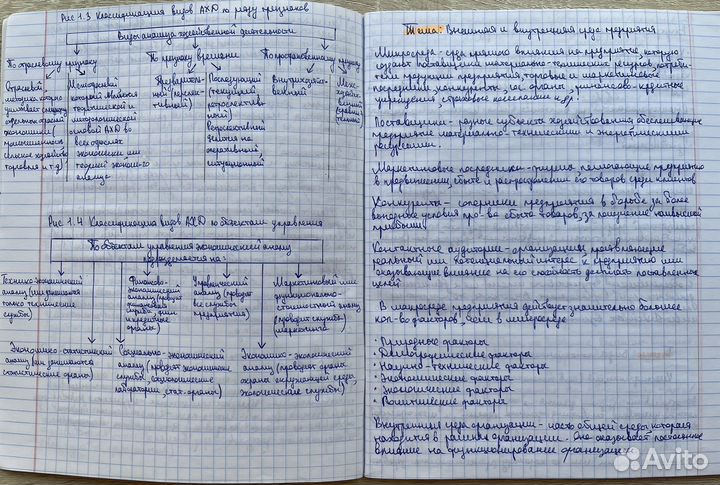 Рис 1.3 Классификация видов АХД по ряду признаков
Виды анализа хозяйственной деятельности
По отраслевому признаку
По признаку времени
По пространственному признаку
Отраслевой,
методика которо
учитывает специфику
отдельных отраслей
экономики (
промышленность
сельское хозяйство
торговля и т.д)
Межотраслевой
который является
теоретической и
методологической
основой АХД во
всех отраслях
экономики или
теорией эконом-го
анализа
Предварите-
льный (перспек-
тивный)
Последующий
(текущий,
ретроспектив-
ный)
Ретроспективный
делится на
оперативный
ситуационный
Внутрихозяйс-
твенный
Меж-
хозяйст-
венный
(сравни-
тельный)
Рис 1.4 Классификация видов АХД по объектам управления
По объектам управления экономический анализ
подразделяется на:
Технико-экономический
анализ (им занимаются
только технические
службы)
Финансово-
экономический
анализ (проводят
финансовая
служба, фин
и кредитные
органы)
Управленческий
анализ (проводят
все службы
предприятия)
Маркетинговый или
функционально-
стоимостный анализ
(проводят службы
маркетинга)
Экономико-статистический
анализ (им занимаются
статистические органы)
Социально-экономический
анализ (проводят экономические
службы, социологические
лаборатории, стат. органы)
Экономико-экологический
анализ (проводят органы
охраны окружающей среды,
экологические службы)
Тема: Внешняя и внутренняя среда предприятия
Микросреда - среда прямого влияния на предприятие, которую
создают поставщики материально-технических ресурсов, потреби-
тели продукции предприятия, торговые и маркетинговые
посредники, конкуренты, гос. органы, финансово-кредитные
учреждения, страховые компании и др.
Поставщики - разные субъекты хозяйствования обеспечивающие
предприятие материально-техническими и энергетическими
ресурсами.
Маркетинговые посредники - фирмы, помогающие предприятию
в продвижении, сбыте и распространении его товаров среди клиентов
Конкуренты - соперники предприятия в борьбе за более
выгодные условия про-ва сбыта товаров, за получение наивысшей
прибыли
Контактные аудитории - организации, проявляющие
реальный или потенциальный интерес к предприятию или
оказывающие влияние на его способность достигать поставленных
целей
В макросреде предприятия действует значительно большее
кол-во факторов, чем в микросреде
• Природные факторы
• Демографические факторы
• Научно-технические факторы
• Экономические факторы
• Экологические факторы
• Политические факторы
Внутренняя среда организации - часть общей среды которая
находится в рамках организации. Она оказывает постоянное
влияние на функционирование организации
Avito